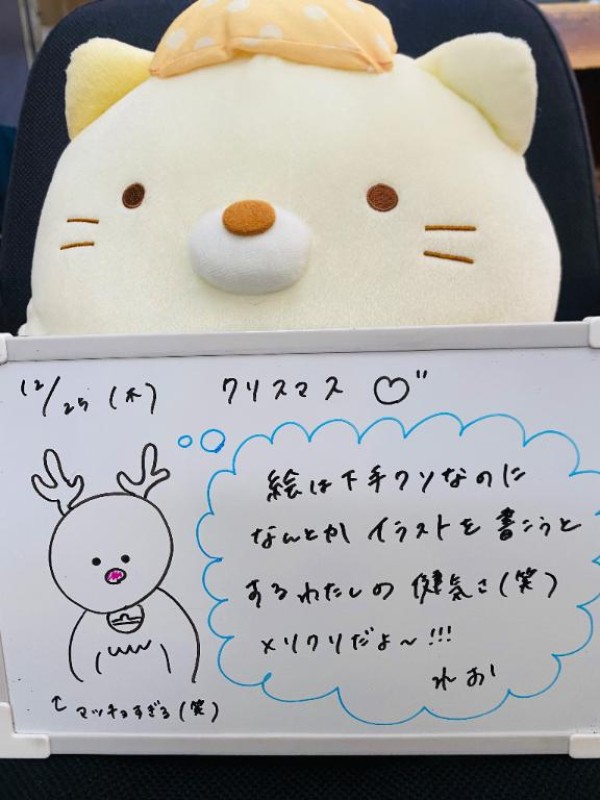 12/25 (木) クリスマス ♡"
絵は下手クソなのに
なんとかイラストを書こうと
するわたしの健気さ(笑)
メリクリだよ〜!!!
れお
↑マッチョすぎる(笑)